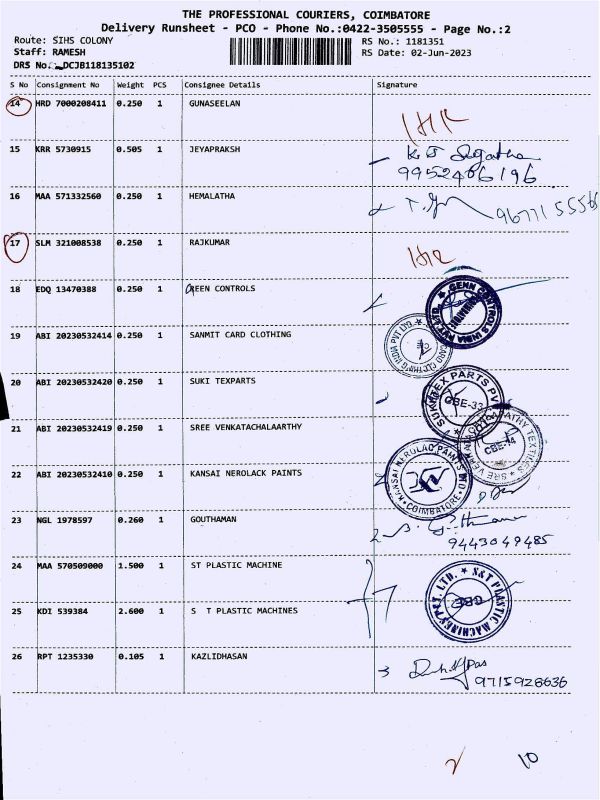 THE PROFESSIONAL COURIERS, COIMBATORE
Delivery Runsheet - PCO - Phone No.:0422-3505555 - Page No.:2
Route: SIHS COLONY RS No.: 1181351
Staff: RAMESH RS Date: 02-Jun-2023
DRS No. DCJB118135102
S No Consignment No Weight PCS Consignee Details Signature
14 HRD 7000208411 0.250 1 GUNASEELAN
15 KRR 5730915 0.505 1 JEYAPRAKSH
9952406196
16 MAA 571332560 0.250 1 HEMALATHA
17 SLM 321008538 0.250 1 RAJKUMAR
18 EDQ 13470388 0.250 1 GREEN CONTROLS
GENN CONTROLS INDIA PVT LTD
19 ABI 20230532414 0.250 1 SANMIT CARD CLOTHING
20 ABI 20230532420 0.250 1 SUKI TEXPARTS
CBE-33
21 ABI 20230532419 0.250 1 SREE VENKATACHALAARTHY
CBE-14
22 ABI 20230532410 0.250 1 KANSAI NEROLACK PAINTS
KANSAI NEROLAC PAINTS LTD COIMBATORE
23 NGL 1978597 0.260 1 GOUTHAMAN
9443049485
24 MAA 570509000 1.500 1 ST PLASTIC MACHINE
S&T PLASTIC MACHINES PVT. LTD.
25 KDI 539384 2.600 1 S T PLASTIC MACHINES
26 RPT 1235330 0.105 1 KAZLIDHASAN
3
9715928636
10